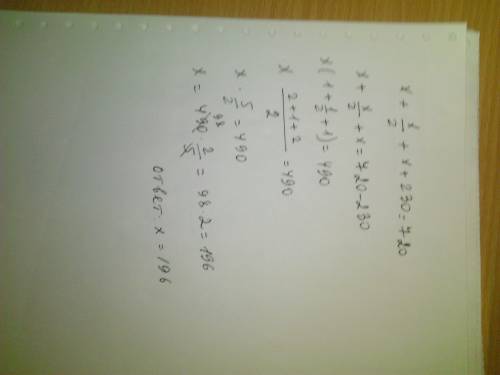 x + x/2 + x + 230 = 720
x + x/2 + x = 720 - 230
x(1 + 1/2 + 1) = 490
x (2+1+2)/2 = 490
x · 5/2 = 490
x = 490 98 2/5 = 98 · 2 = 196
ответ: x = 196